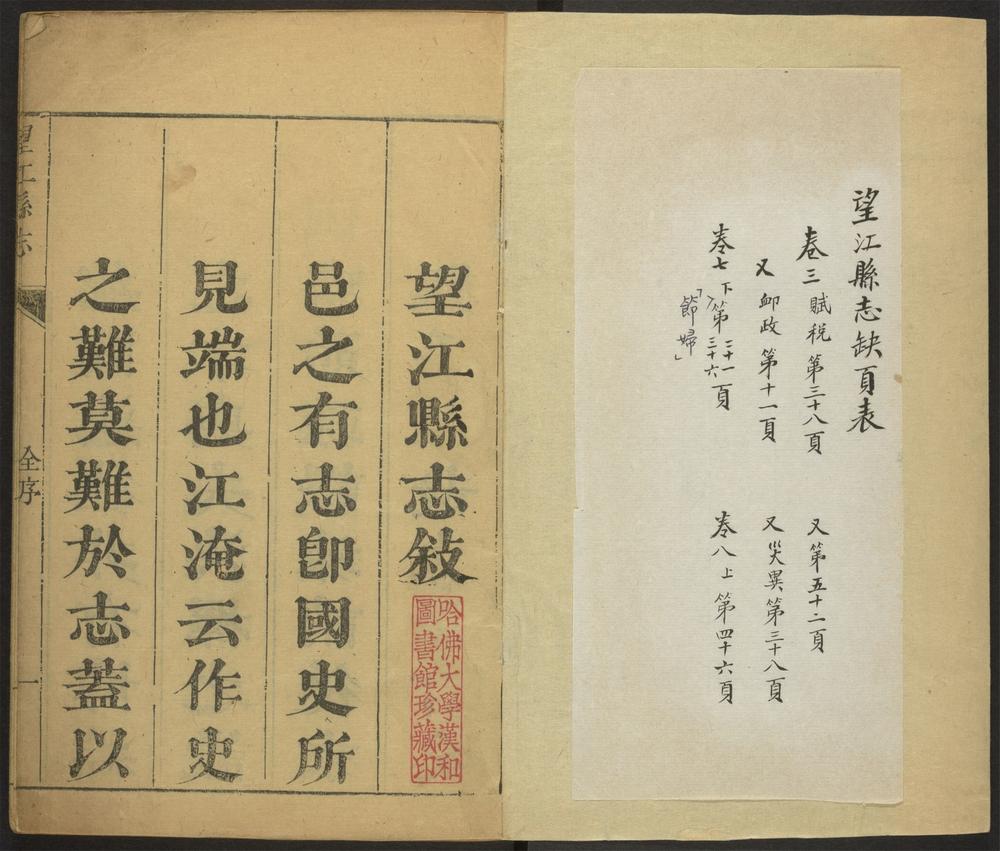 望江縣志缺頁表
卷三 賦税 第三十八頁
又第五十二頁
又 卹政 第十一頁
又災異第三十八頁
卷七下第二十一頁
三十六
「節婦」
卷八上第四十六頁
望江縣志敍
哈佛大學漢和
圖書館珍藏印
邑之有志卽國史所
見端也江淹云作史
之難莫難於志蓋以
望江縣志
全序
一